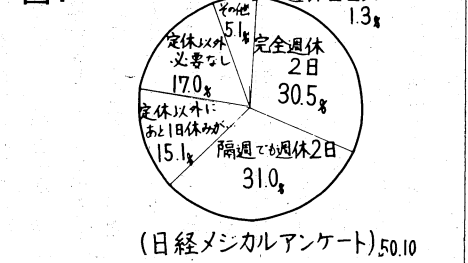 1.3%
その他
5.1%
完全週休
2日
30.5%
定休以外
必要なし
17.0%
定休以外に
あと1日休みが…
15.1%
隔週でも週休2日
31.0%
(日経メジカルアンケート)50.10